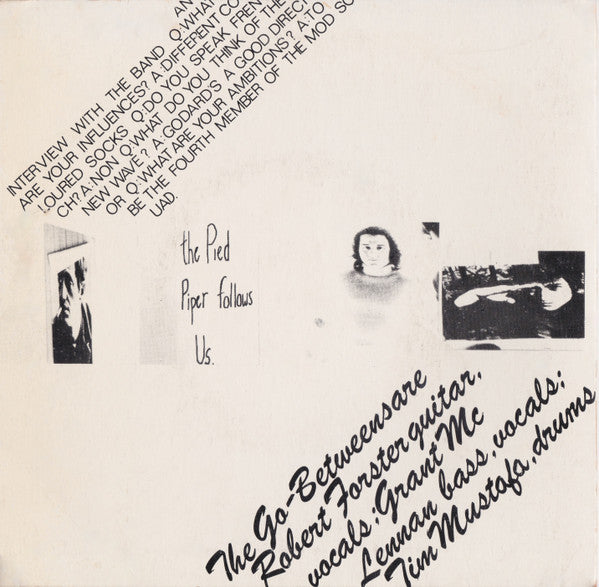 AN
INTERVIEW WITH THE BAND Q:WHAT
ARE YOUR INFLUENCES? A:DIFFERENT CO
LOURED SOCKS Q:DO YOU SPEAK FREN
CH? A:NON Q:WHAT DO YOU THINK OF THE
NEW WAVE? A:GODARD'S A GOOD DIRECT
OR Q:WHAT ARE YOUR AMBITIONS? A:TO
BE THE FOURTH MEMBER OF THE MOD SQ
UAD.
the Pied
Piper follows
Us.
The Go-Betweens are
Robert Forster guitar,
vocals; Grant Mc
Lennan bass, vocals;
Tim Mustafa, drums